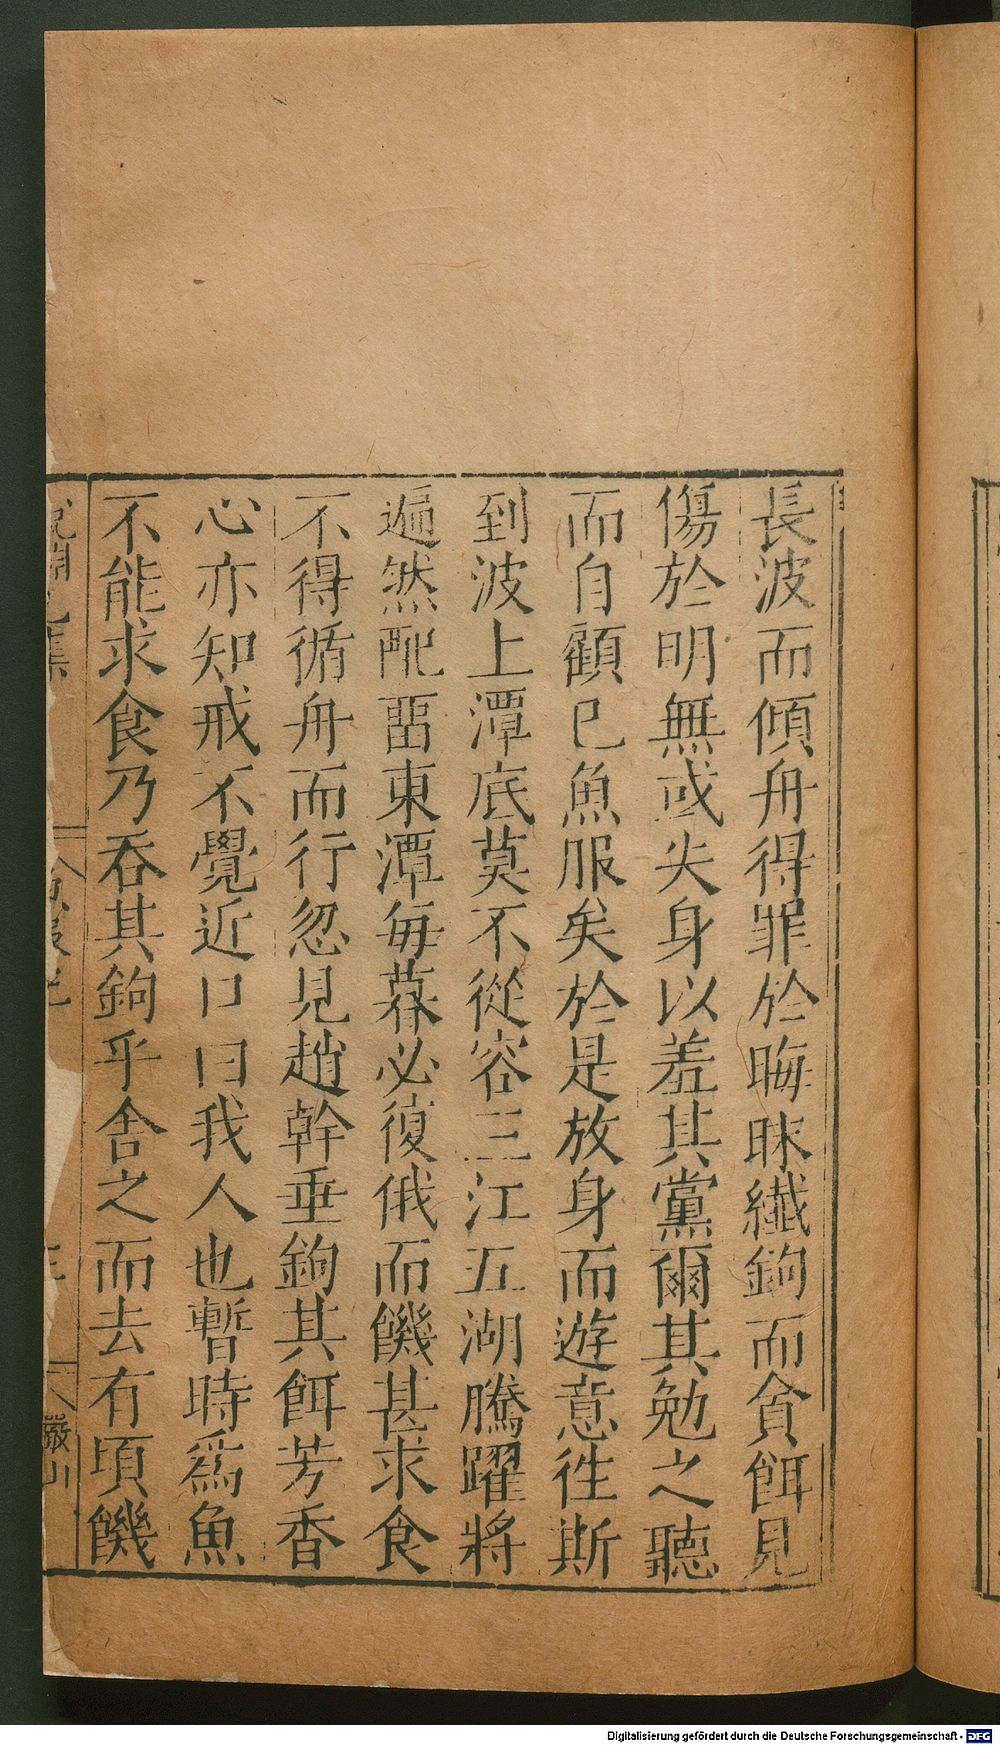 長波而傾舟得罪於晦昧纎鉤而貪餌見
傷於明無或失身以羞其黨爾其勉之聽
而自顧已魚服矣於是放身而遊意徃斯
到波上潭底莫不從容三江五湖騰躍將
遍然配畱東潭每暮必復俄而饑甚求食
不得循舟而行忽見趙幹垂鉤其餌芳香
心亦知戒不覺近口曰我人也暫時爲魚
不能求食乃吞其鉤乎舍之而去有頃饑
巖山
Digitalisierung gefördert durch die Deutsche Forschungsgemeinschaft - DFG